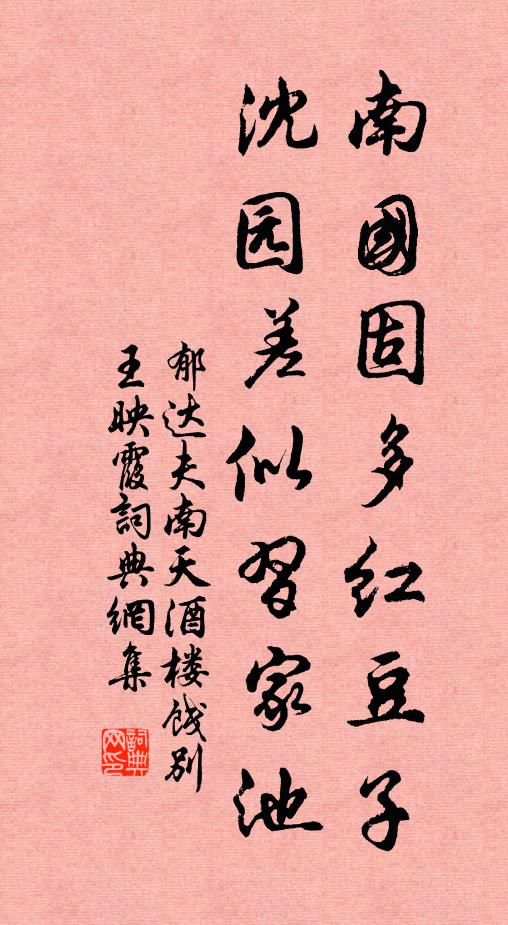 南國固多红豆子
沈园差似習家池
郁达夫南天酒楼饯别
王映霞詞典網集
詞典网印